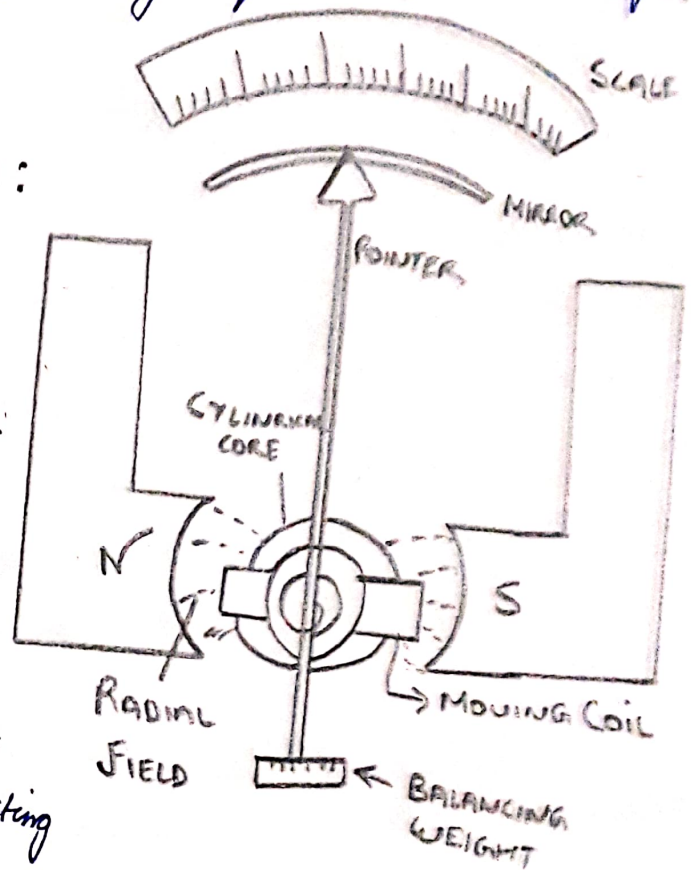 SCALE
:
MIRROR
POINTER
CYLINRICAL
CORE
N
S
RADIAL
FIELD
MOVING COIL
BALANCING
WEIGHT
ting